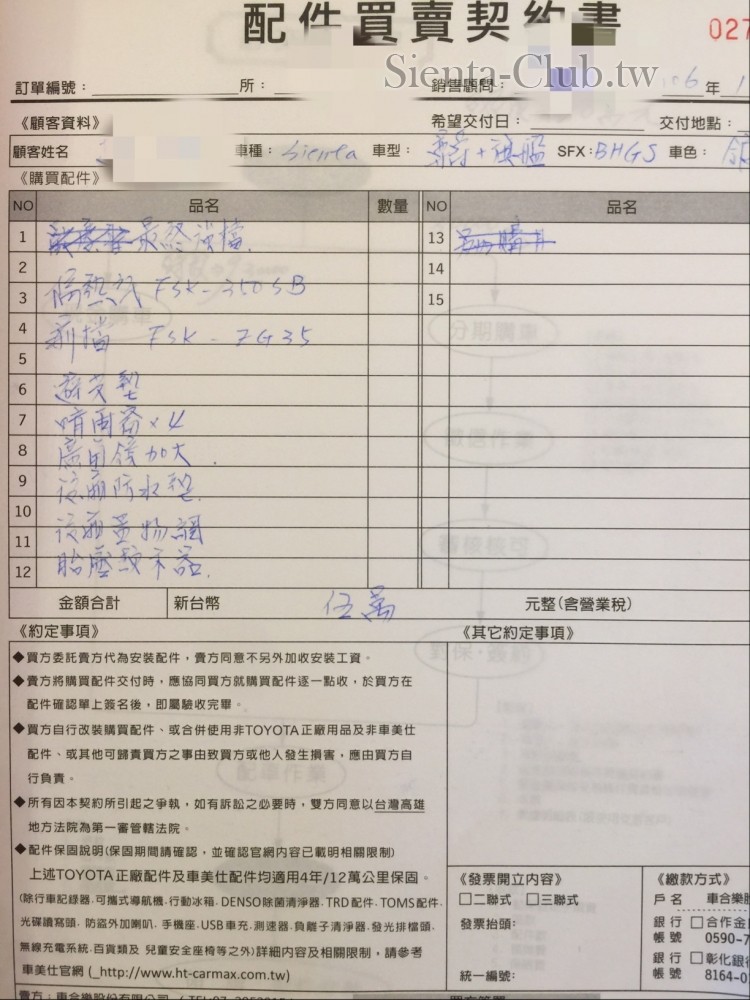 配件買賣契約書
027
Sienta-Club.tw
訂單編號： 所： 銷售顧問： 106 年 1
希望交付日： 交付地點：
《顧客資料》
顧客姓名 車種：Sienta 車型： +旗艦 SFX：BHGS 車色：
《購買配件》
NO 品名 數量 NO 品名
1 最終 檔. 13
2 14
3 隔熱 FSK-350SB 15
4 前檔 FSK-FG35
5
6 避光墊
7 晴雨窗×4
8 廣角鏡加大.
9 後廂防水墊.
10
11 後廂置物網
12 胎壓顯示器.
金額合計 新台幣 伍萬 元整(含營業稅)
《約定事項》 《其它約定事項》
◆買方委託貴方代為安裝配件，貴方同意不另外加收安裝工資。
◆貴方將購買配件交付時，應協同買方就購買配件逐一點收，於買方在
配件確認單上簽名後，即屬驗收完畢。
◆買方自行改裝購買配件、或合併使用非TOYOTA正廠用品及非車美仕
配件、或其他可歸責買方之事由致買方或他人發生損害，應由買方自
行負責。
◆所有因本契約所引起之爭執，如有訴訟之必要時，雙方同意以台灣高雄
地方法院為第一審管轄法院。
◆配件保固說明(保固期間請確認，並確認官網內容已載明相關限制)
上述TOYOTA正廠配件及車美仕配件均適用4年/12萬公里保固。
(除行車記錄器.可攜式導航機.行動冰箱.DENSO除菌清淨器.TRD配件.TOMS配件.
光碟讀寫頭.防盜外加喇叭.手機座.USB車充.測速器.負離子清淨器.發光排檔頭.
無線充電系統.百貨類及 兒童安全座椅等之外)詳細內容及相關限制，請參考
車美仕官網(_http://www.ht-carmax.com.tw)
《發票開立內容》
□二聯式 □三聯式
發票抬頭：
統一編號：
《繳款方式》
戶 名 車合樂
銀 行 □合作金
帳 號 0590-7
銀 行 □彰化銀
帳 號 8164-0
賣方：車合樂股份有限公司